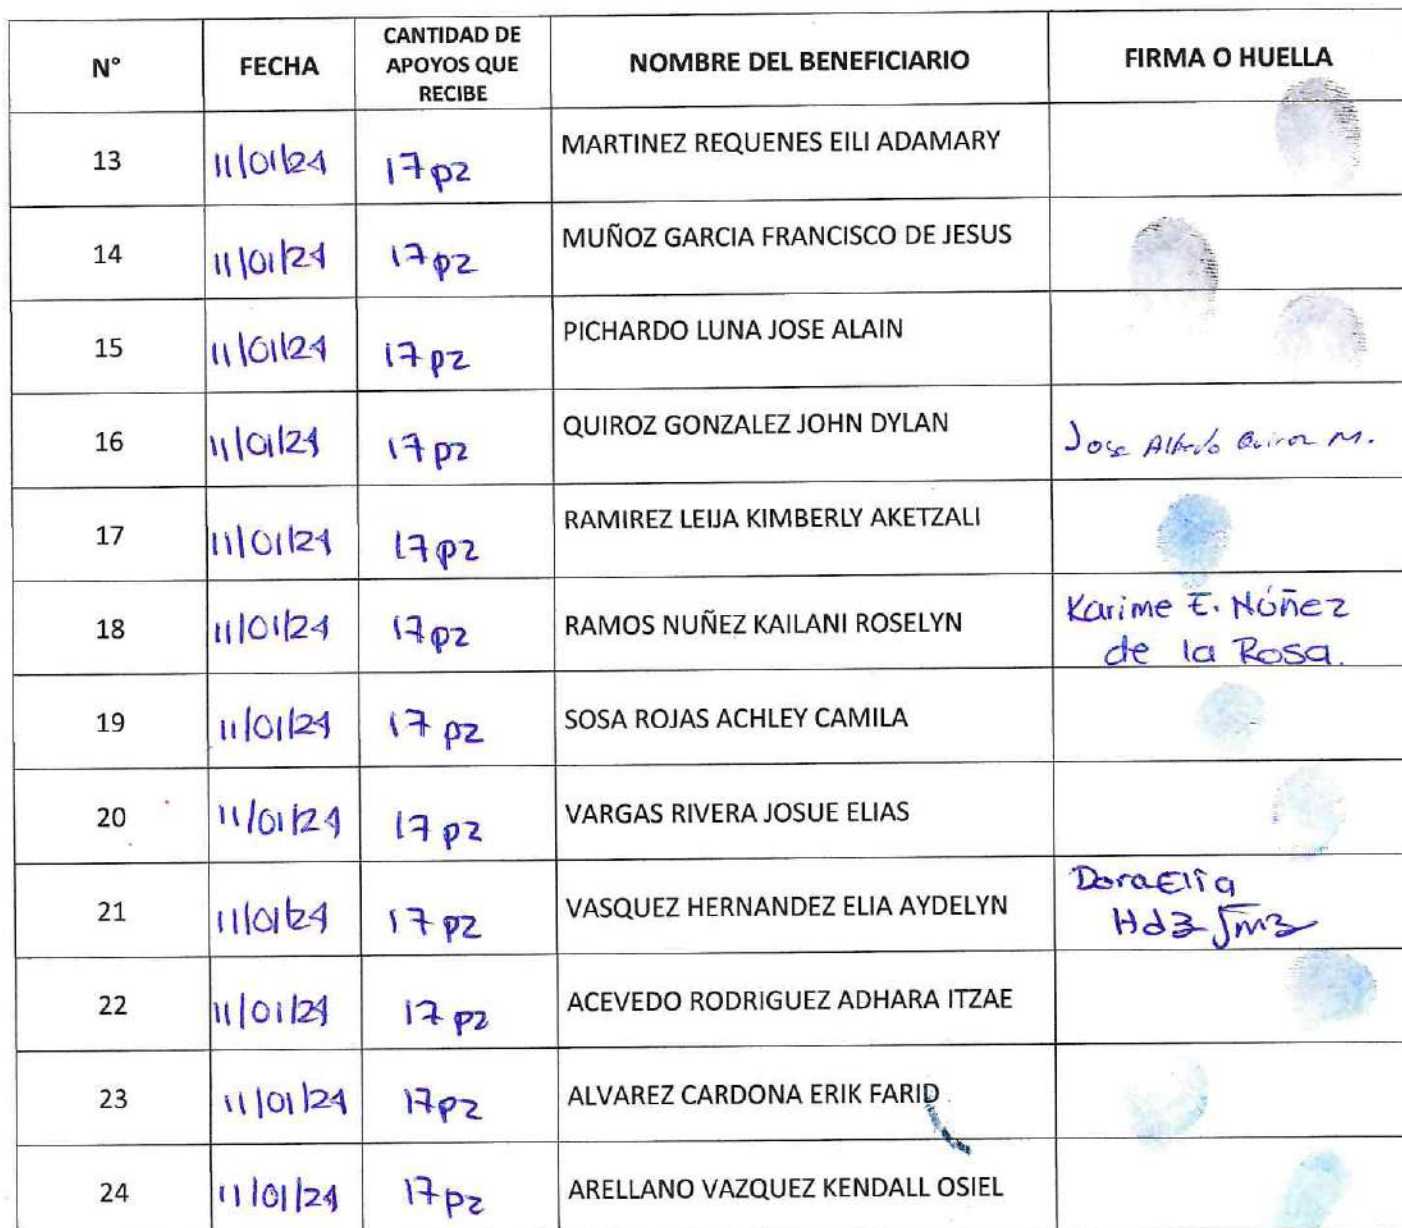 N° FECHA CANTIDAD DE APOYOS QUE RECIBE NOMBRE DEL BENEFICIARIO FIRMA O HUELLA
13 11/01/24 17 pz MARTINEZ REQUENES EILI ADAMARY
14 11/01/24 17 pz MUÑOZ GARCIA FRANCISCO DE JESUS
15 11/01/24 17 pz PICHARDO LUNA JOSE ALAIN
16 11/01/24 17 pz QUIROZ GONZALEZ JOHN DYLAN Jose Alfredo Quiroz M.
17 11/01/24 17 pz RAMIREZ LEIJA KIMBERLY AKETZALI
18 11/01/24 17 pz RAMOS NUÑEZ KAILANI ROSELYN Karime E. Núñez
de la Rosa.
19 11/01/24 17 pz SOSA ROJAS ACHLEY CAMILA
20 11/01/24 17 pz VARGAS RIVERA JOSUE ELIAS
21 11/01/24 17 pz VASQUEZ HERNANDEZ ELIA AYDELYN Dora Elia
Hdz
22 11/01/24 17 pz ACEVEDO RODRIGUEZ ADHARA ITZAE
23 11/01/24 17 pz ALVAREZ CARDONA ERIK FARID
24 11/01/24 17 pz ARELLANO VAZQUEZ KENDALL OSIEL